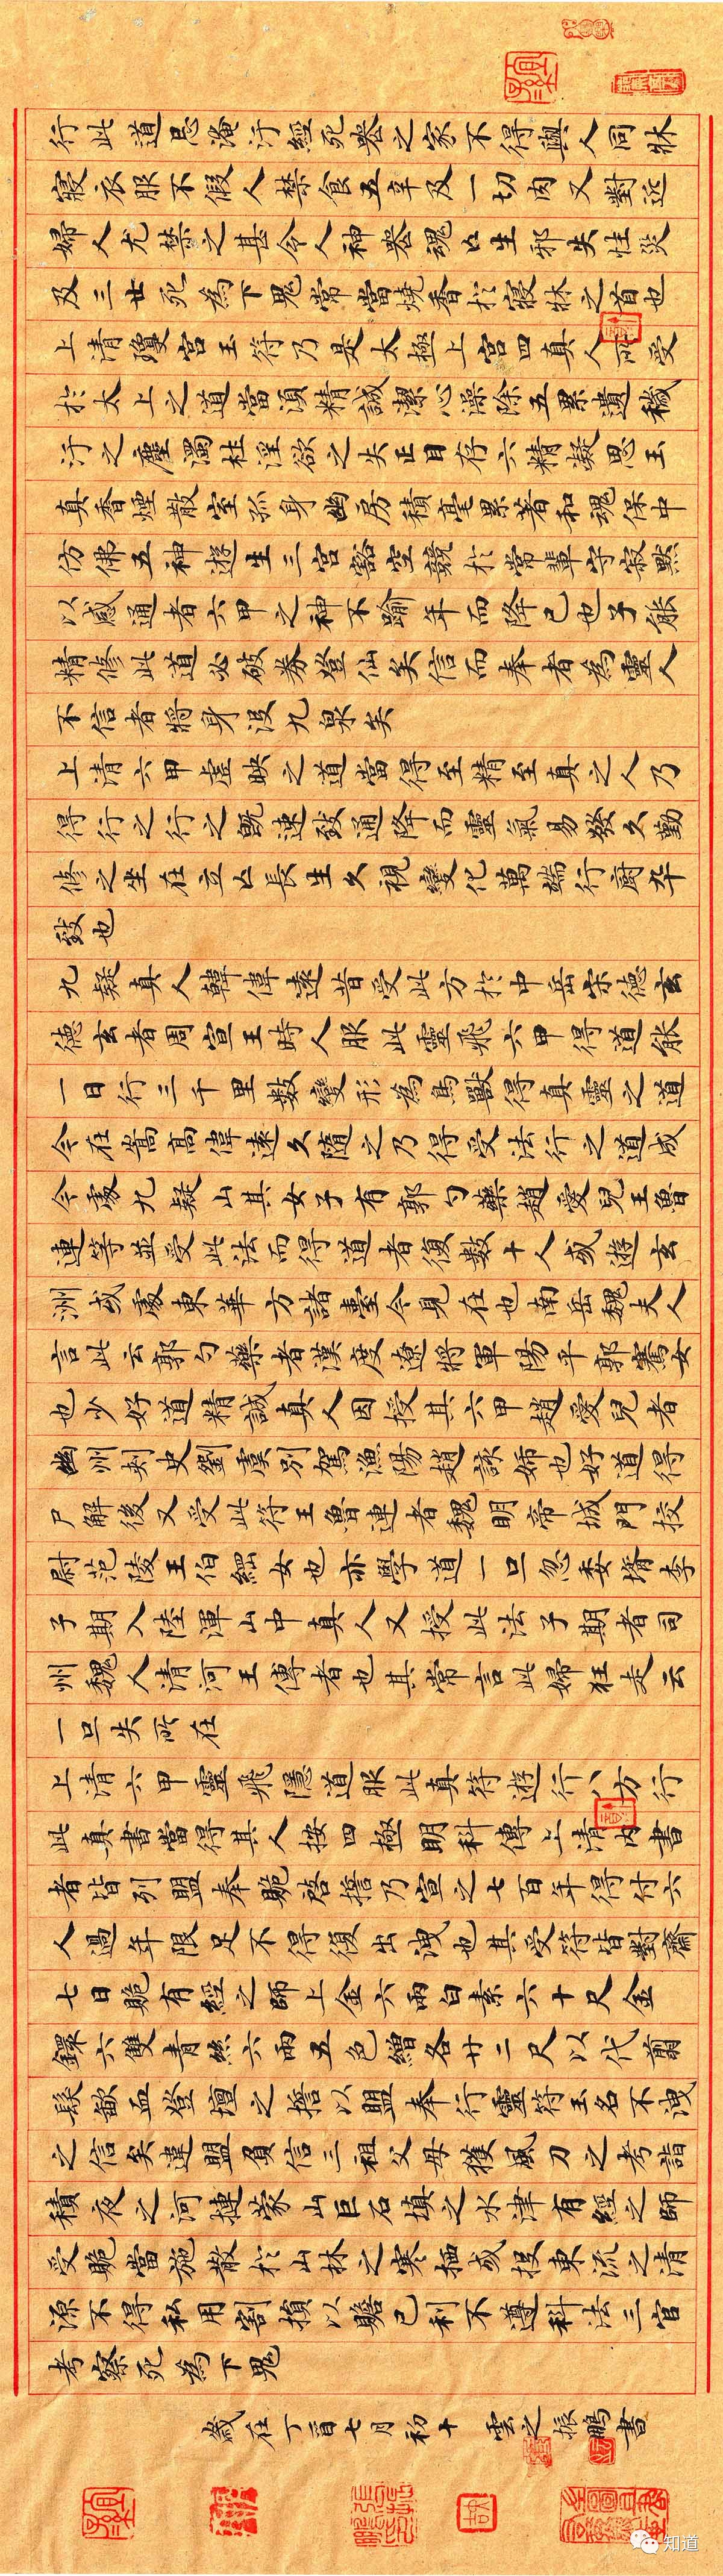 行此道忌淹汙經死喪之家不得與人同牀
寢衣服不假人禁食五辛及一切肉又對近
婦人尤禁之甚令人神喪魂亡生邪失性災
及三世死為下鬼常當燒香於寢牀之首也
上清瓊宮玉符乃是太極上宮四真人所受
於太上之道當須精誠潔心澡除五累遺穢
汙之塵濁杜淫欲之失正目存六精凝思玉
真香煙散室孤身幽房積毫累著和魂保中
仿佛五神遊生三宮豁空競於常輩守寂默
以感通者六甲之神不踰年而降己也子能
精修此道必破券登仙矣信而奉者為靈人
不信者將身没九泉矣
上清六甲虛映之道當得至精至真之人乃
得行之行之既速致通降而靈氣易發久勤
修之坐在立亡長生久視變化萬端行厨卒
致也
九疑真人韓偉遠昔受此方於中岳宋德玄
德玄者周宣王時人服此靈飛六甲得道能
一日行三千里數變形為鳥獸得真靈之道
今在嵩高偉遠久隨之乃得受法行之道成
今處九疑山其女子有郭勺藥趙愛兒王魯
連等並受此法而得道者復數十人或遊玄
洲或處東華方諸臺今見在也南岳魏夫人
言此云郭勺藥者漢度遼將軍陽平郭騫女
也少好道精誠真人因授其六甲趙愛兒者
幽州刺史劉虞別駕漁陽趙該姊也好道得
尸解後又受此符王魯連者魏明帝城門挍
尉范陵王伯綱女也亦學道一旦忽委壻李
子期入陸渾山中真人又授此法子期者司
州魏人清河王傳者也其常言此婦狂走云
一旦失所在
上清六甲靈飛隱道服此真符遊行八方行
此真書當得其人按四極明科傳上清內書
者皆列盟奉贶啓擔乃宣之七百年得付六
人過年限足不得復出洩也其受符皆對齋
七日贶有經之師上金六兩白素六十尺金
鐶六雙青絲六兩五色繒各廿二尺以代翦
髮歃血登壇之擔以盟奉行靈符玉名不洩
之信矣違盟負信三祖父母獲風刀之考詣
積夜之河摙蒙山巨石填之水津有經之師
受贶當施散於山林之寒栖或投東流之清
源不得私用割損以贍己利不遵科法三官
考察死為下鬼
歲在丁酉七月初十 雲之振鵬書
知道